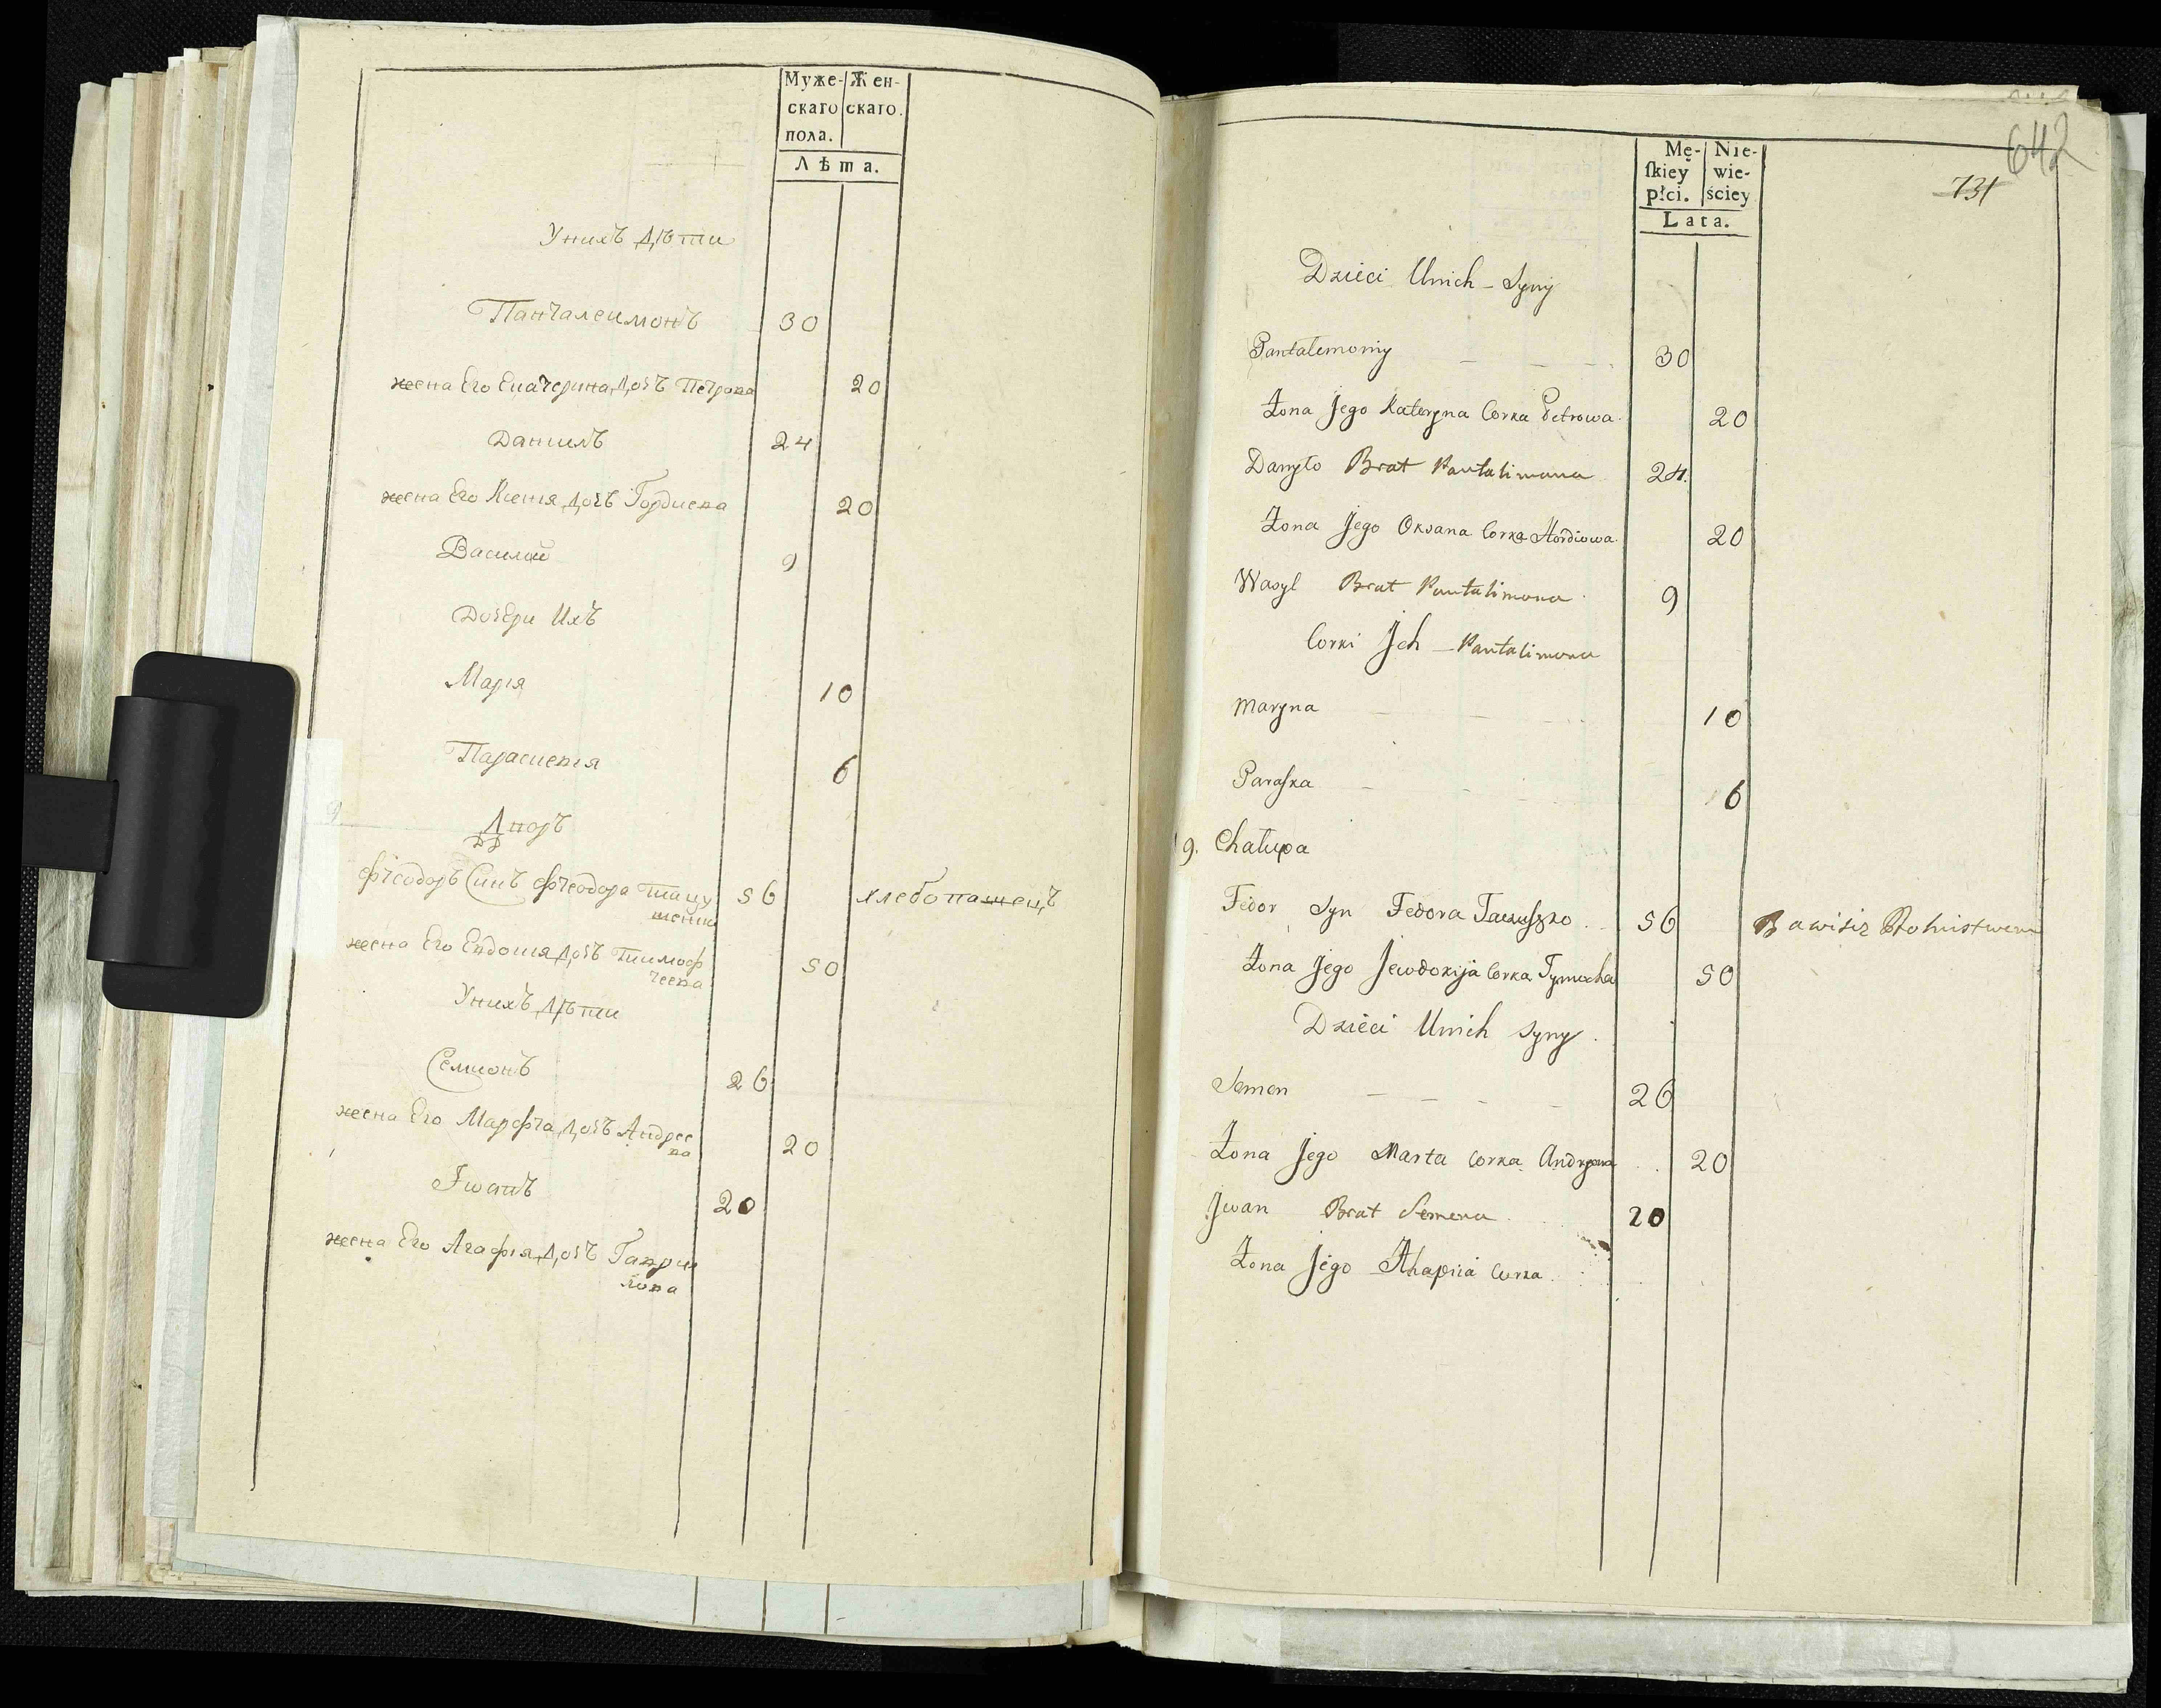 Муже-
скаго
пола.
Жен-
скаго.
Лѣта.
Унихъ Дѣти
Панталеимонъ 30
жена Его Екатерина Дочъ Петрова 20
Данилъ 24
жена Его Ксенія Дочъ Гордиева 20
Василий 9
Дочери Ихъ
Марія 10
Параскевія 6
9
Дворъ
Фтеодоръ Синъ Фтеодора 56 хлебопашецъ
жена Его Евдокия Дочъ Тимоф
теева 50
Унихъ Дѣти
Семионъ 26
жена Его Марфта Дочъ Андрее
ва 20
Iванъ 20
жена Его Агафія Дочъ Гаври
лова
642
731
Mę-
ſkiey
płci.
Nie-
wie-
ściey
Lata.
Dzieci Unich - Syny
Pantalemoniy 30
Żona Jego Kateryna Corka Petrowa 20
Danyło Brat Pantalimona 24.
Żona Jego Oksana Corka Hordiowa 20
Wasyl Brat Pantalimona 9
Corki Jch - Pantalimona
Maryna 10
Paraſka 6
9. Chałupa
Fedor Syn Fedora 56 Bawisiz Rolnistwem
Żona Jego Jewdokija Corka Tymocha 50
Dzieci Unich Syny.
Semen 26
Żona Jego Marta Corka Andrzeia 20
Jwan Brat Semena 20
Żona Jego Ahapiia Corka